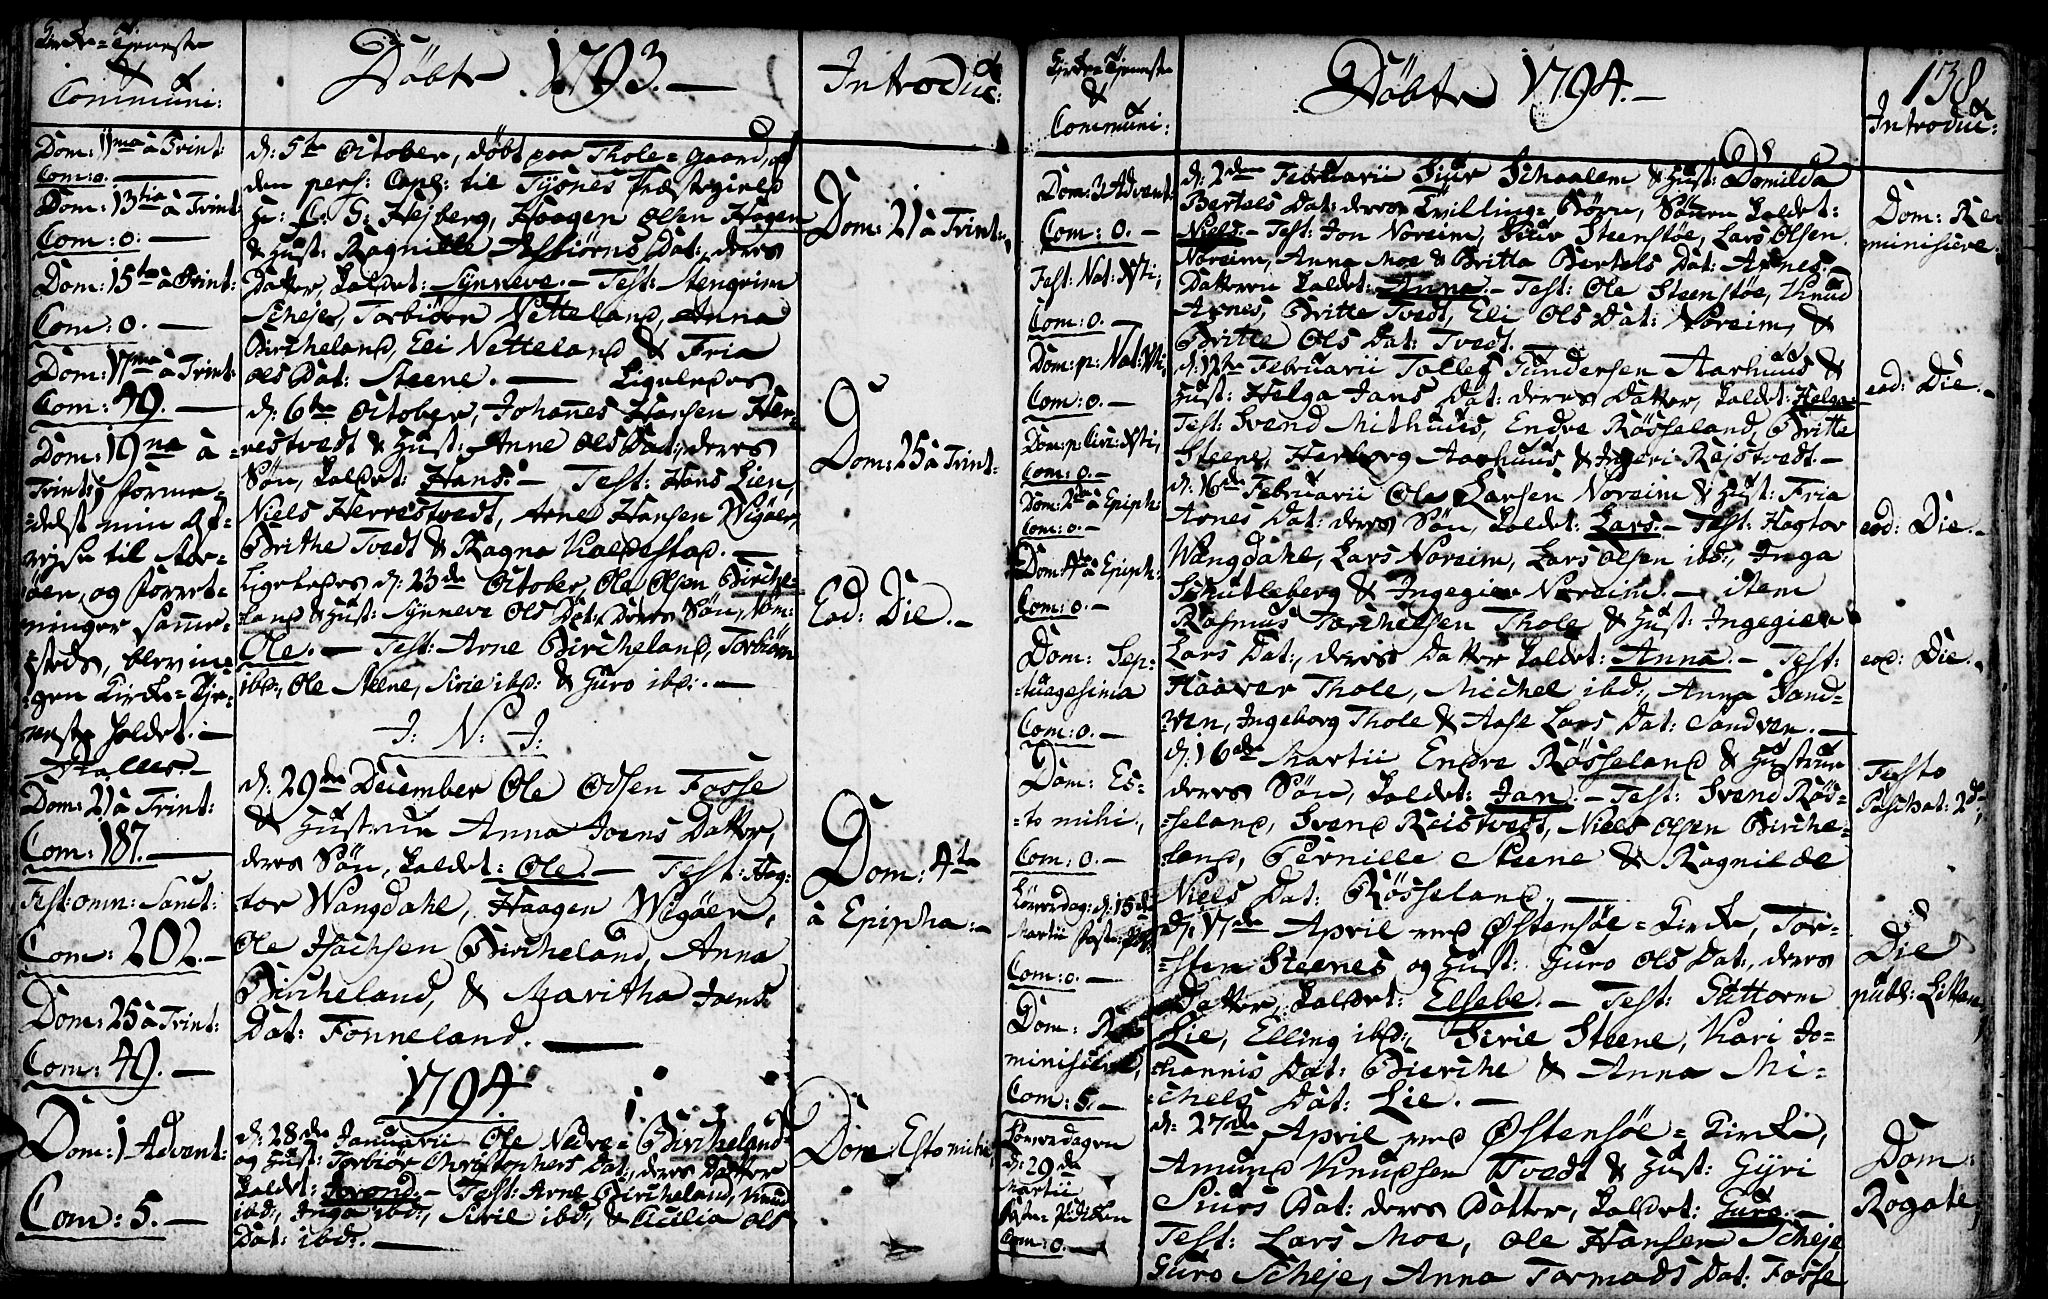 Kirke-Tjeneste
&
Communi:
Dom: 11ma à Trint:
Com: 0. —
Dom: 13tia à Trint:
Com: 0. —
Dom: 15ta à Trint:
Com: 0. —
Dom: 17ma à Trint:
Com: 49. —
Dom: 19na à
Trint:
min Af-
til
og
steds,
-gen Kirke-Tje-
holdet. —
Dom: 21 à Trint:
Com: 187. —
Fest: omn: Sanct:
Com: 202. —
Dom: 25 à Trint:
Com: 49. —
Dom: 1 Advent:
Com: 5. —
Döbte 1793. —
d: 5te October, döbt paa Thole-Gaard, af
den pers: Capl: til Tÿsnes Præstegield
Hr: C: G: Hejberg, Haagen Olsen Hagen
& Hust: Ragnille Asbiörns Dat:, deres
Datter, kaldet: Synneve. — Test: Stengrim
Scheje, Torbiörn Netteland, Anna
Bircheland, Eli Netteland & Fria
Ols Dat: Steene. — Ligeledes
d: 6te October, Johanes Hansen Her-
restvedt & Hust: Anne Ols Dat:, deres
Sön, kaldet: Hans. — Test: Hans Lien,
Niels Herrestvedt, Arne Hansen Wigöer,
Brithe Tvedt & Ragna Kaldestad. —
Ligeledes d: 23de October, Ole Olsen Birche-
land & Hust: Synneve Ols Dat:, deres Sön,
Ole. — Test: Arne Bircheland, Torbiörn
ibd:, Ole Steene, Sirie ibd: & Guro ibd:. —
J: N: J:
d: 29de December Ole Odsen Fosse
& Hustrue Anna Joens Datter,
deres Sön, kaldet: Ole. — Test: Hag-
tor Wangdahl, Haagen Wigöer,
Ole Hachsen Bircheland, Anna
Bircheland, & Maritha Joens
Dat: Fonneland. —
1794.
d: 28de Januarii Ole Nedre-Bircheland
og Hust: Torbiör Christophers Dat:, deres Datter
kaldet: — Test: Arne Bircheland, Knud
ibd:, Inga ibd:, Sirie ibd:, & Cicilia Ols
Dat: ibd:. —
Introduc:
Dom: 21 à Trint:
Dom: 25 à Trint:
Eod: Die. —
Dom: 4ta
à Epipha: —
Dom: Esto mihi,
Kirke-Tjeneste
&
Communi:
Dom: 3 Advent:
Com: 0. —
Fest: Nat: Xsti,
Com: 0. —
Dom: p: Nat: Xsti,
Com: 0. —
Dom: p: Circ: Xsti,
Com: 0. —
Dom: 2da à Epiph:
Com: 0. —
Dom: 4ta à Epiph:
Com: 0. —
Dom: Sep-
-tuagesima
Com: 0. —
Dom: Es-
-to mihi,
Com: 0. —
Löverdag: d: 15de
Martii
Com: 0. —
Dom: Re-
miniscere,
Com: 5. —
Löverdagen
d: 29de
Martii
Com: 0. —
Döbte 1794. —
d: 2den Februarii Siur Schaalem & Hust: Domilda
Bertels Dat: deres Tvilling-Börn, Sönnen kaldet:
Niels. — Test: Jon Noreim, Siur Steenstöe, Lars Olsen
Noreim, Anna Moe & Britta Bertels Dat: Aenes.
Datteren kaldet: Anna. — Test: Ole Steenstöe, Knud
Aenes, Britte Tvedt, Eli Ols Dat: Noreim, &
Britte Ols Dat: Tvedt. —
d: 12te Februarii Tollef Gundersen Aarhuus &
Hust: Helga Jans Dat: deres Datter, kaldet: Helga.
Test: Svend Mithuus, Endre Rösseland, Britte
Steene, Herborg Aarhuus & Ingeri Rejstvedt. —
d: 16de Februarii Ole Larsen Noreim & Hust: Fria
Arnes Dat: deres Sön, kaldet: Lars. — Test: Hagtor
Wangdahl, Lars Noreim, Lars Olsen ibd:, Inga
Schutleberg & Ingegier Noreim. — item
Rasmus Torchelsen Thole & Hust: Ingegier
Lars Dat:, deres Datter kaldet: Anna. — Test:
Haaver Thole, Michel ibd:, Anna Sand-
ven, Ingeborg Thole & Aase Lars Dat: Sandven. —
d: 16de Martii Endre Rösseland & Hustrue
deres Sön, kaldet: Jan. — Test: Svend Rös-
-seland, Svend Reistvedt, Niels Olsen Birche-
land, Pernille Steene & Ragnilde
Niels Dat: Rösseland. —
d: 17de April ved Östensöe-Kirke, Tor-
-sten Steenes og Hust: Guro Ols Dat:, deres
Datter, kaldet: Elsebe. — Test: Guttorm
Lie, Elling ibd:, Sirie Steene, Kari Jo-
-hannis Dat: Bierche & Anna Mi-
-chels Dat: Lie. —
d: 27de April ved Östensöe-Kirke,
Amund Knudsen Tvedt & Hust: Gÿri
Siurs Dat: deres Datter, kaldet: Guro. —
Test: Lars Moe, Ole Hansen Scheje
Guro Scheje, Anna Tormods Dat: Fosse
138
Introduc:
Dom: Re-
miniscere.
eod: Die. —
eod: Die. —
eod: Die. —
Festo
Paschat: 2d:
Die
publ: Litan:
Dom:
Rogate,